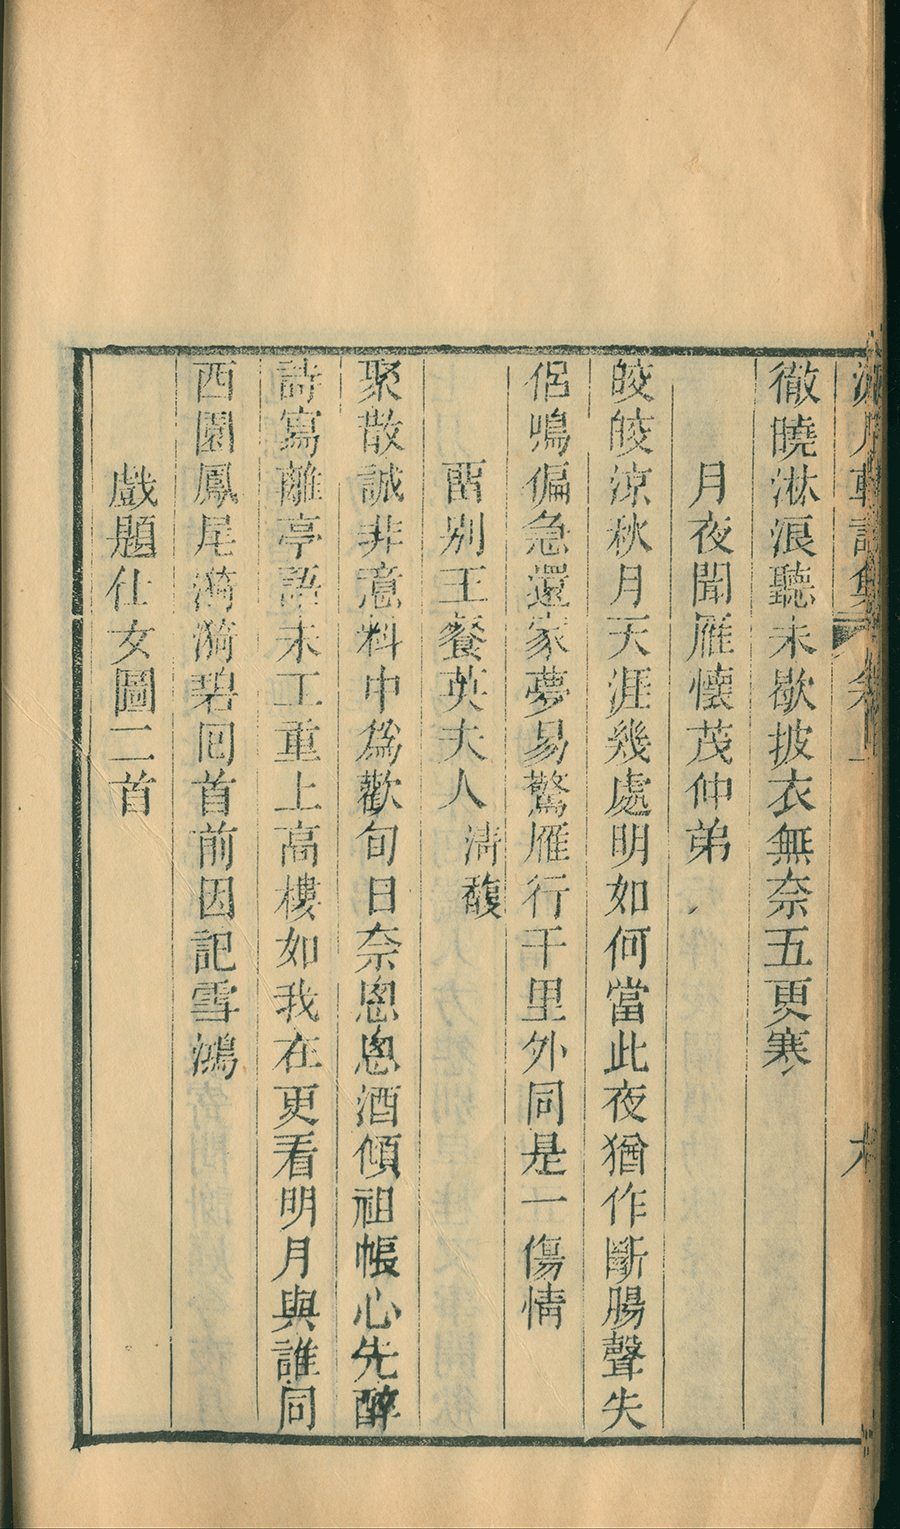 徹曉淋浪聽未歇披衣無奈五更寒
月夜聞雁懷茂仲弟
皎皎涼秋月天涯幾處明如何當此夜猶作斷腸聲失
侶鳴偏急還家夢易驚雁行千里外同是一傷情
畱別王餐英夫人
清馥
聚散誠非意料中爲歡旬日奈悤悤酒傾祖帳心先醉
詩寫離亭語未工重上高樓如我在更看明月與誰同
西園鳳尾漪漪碧回首前因記雪鴻
戲題仕女圖二首